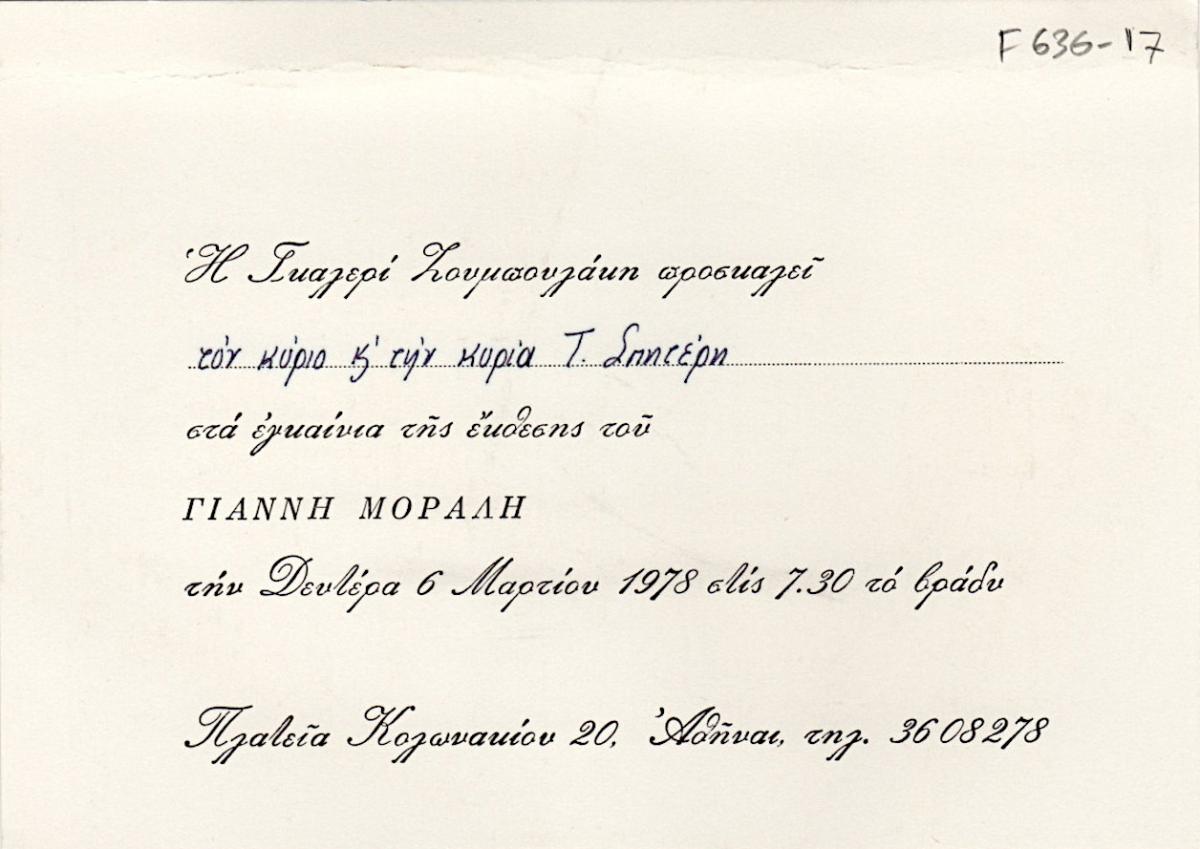 F 636-17
Ἡ Γκαλερί Ζουμπουλάκη προσκαλεῖ
τόν κύριο κ' τήν κυρία Τ. Σπητέρη
στά ἐγκαίνια τῆς ἔκθεσης τοῦ
ΓΙΑΝΝΗ ΜΟΡΑΛΗ
τήν Δευτέρα 6 Μαρτίου 1978 στίς 7.30 τό βράδυ
Πλατεῖα Κολωνακίου 20, Ἀθῆναι, τηλ. 3608278